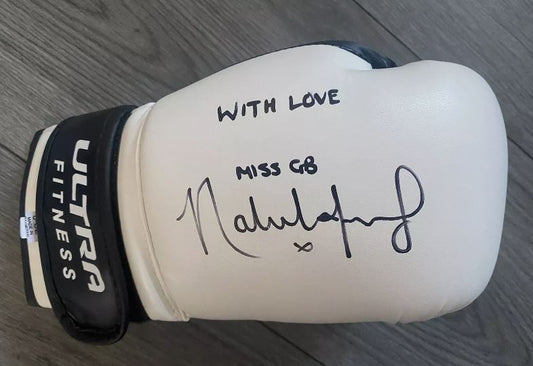 WITH LOVE
MISS GB
x
ULTRA
FITNESS